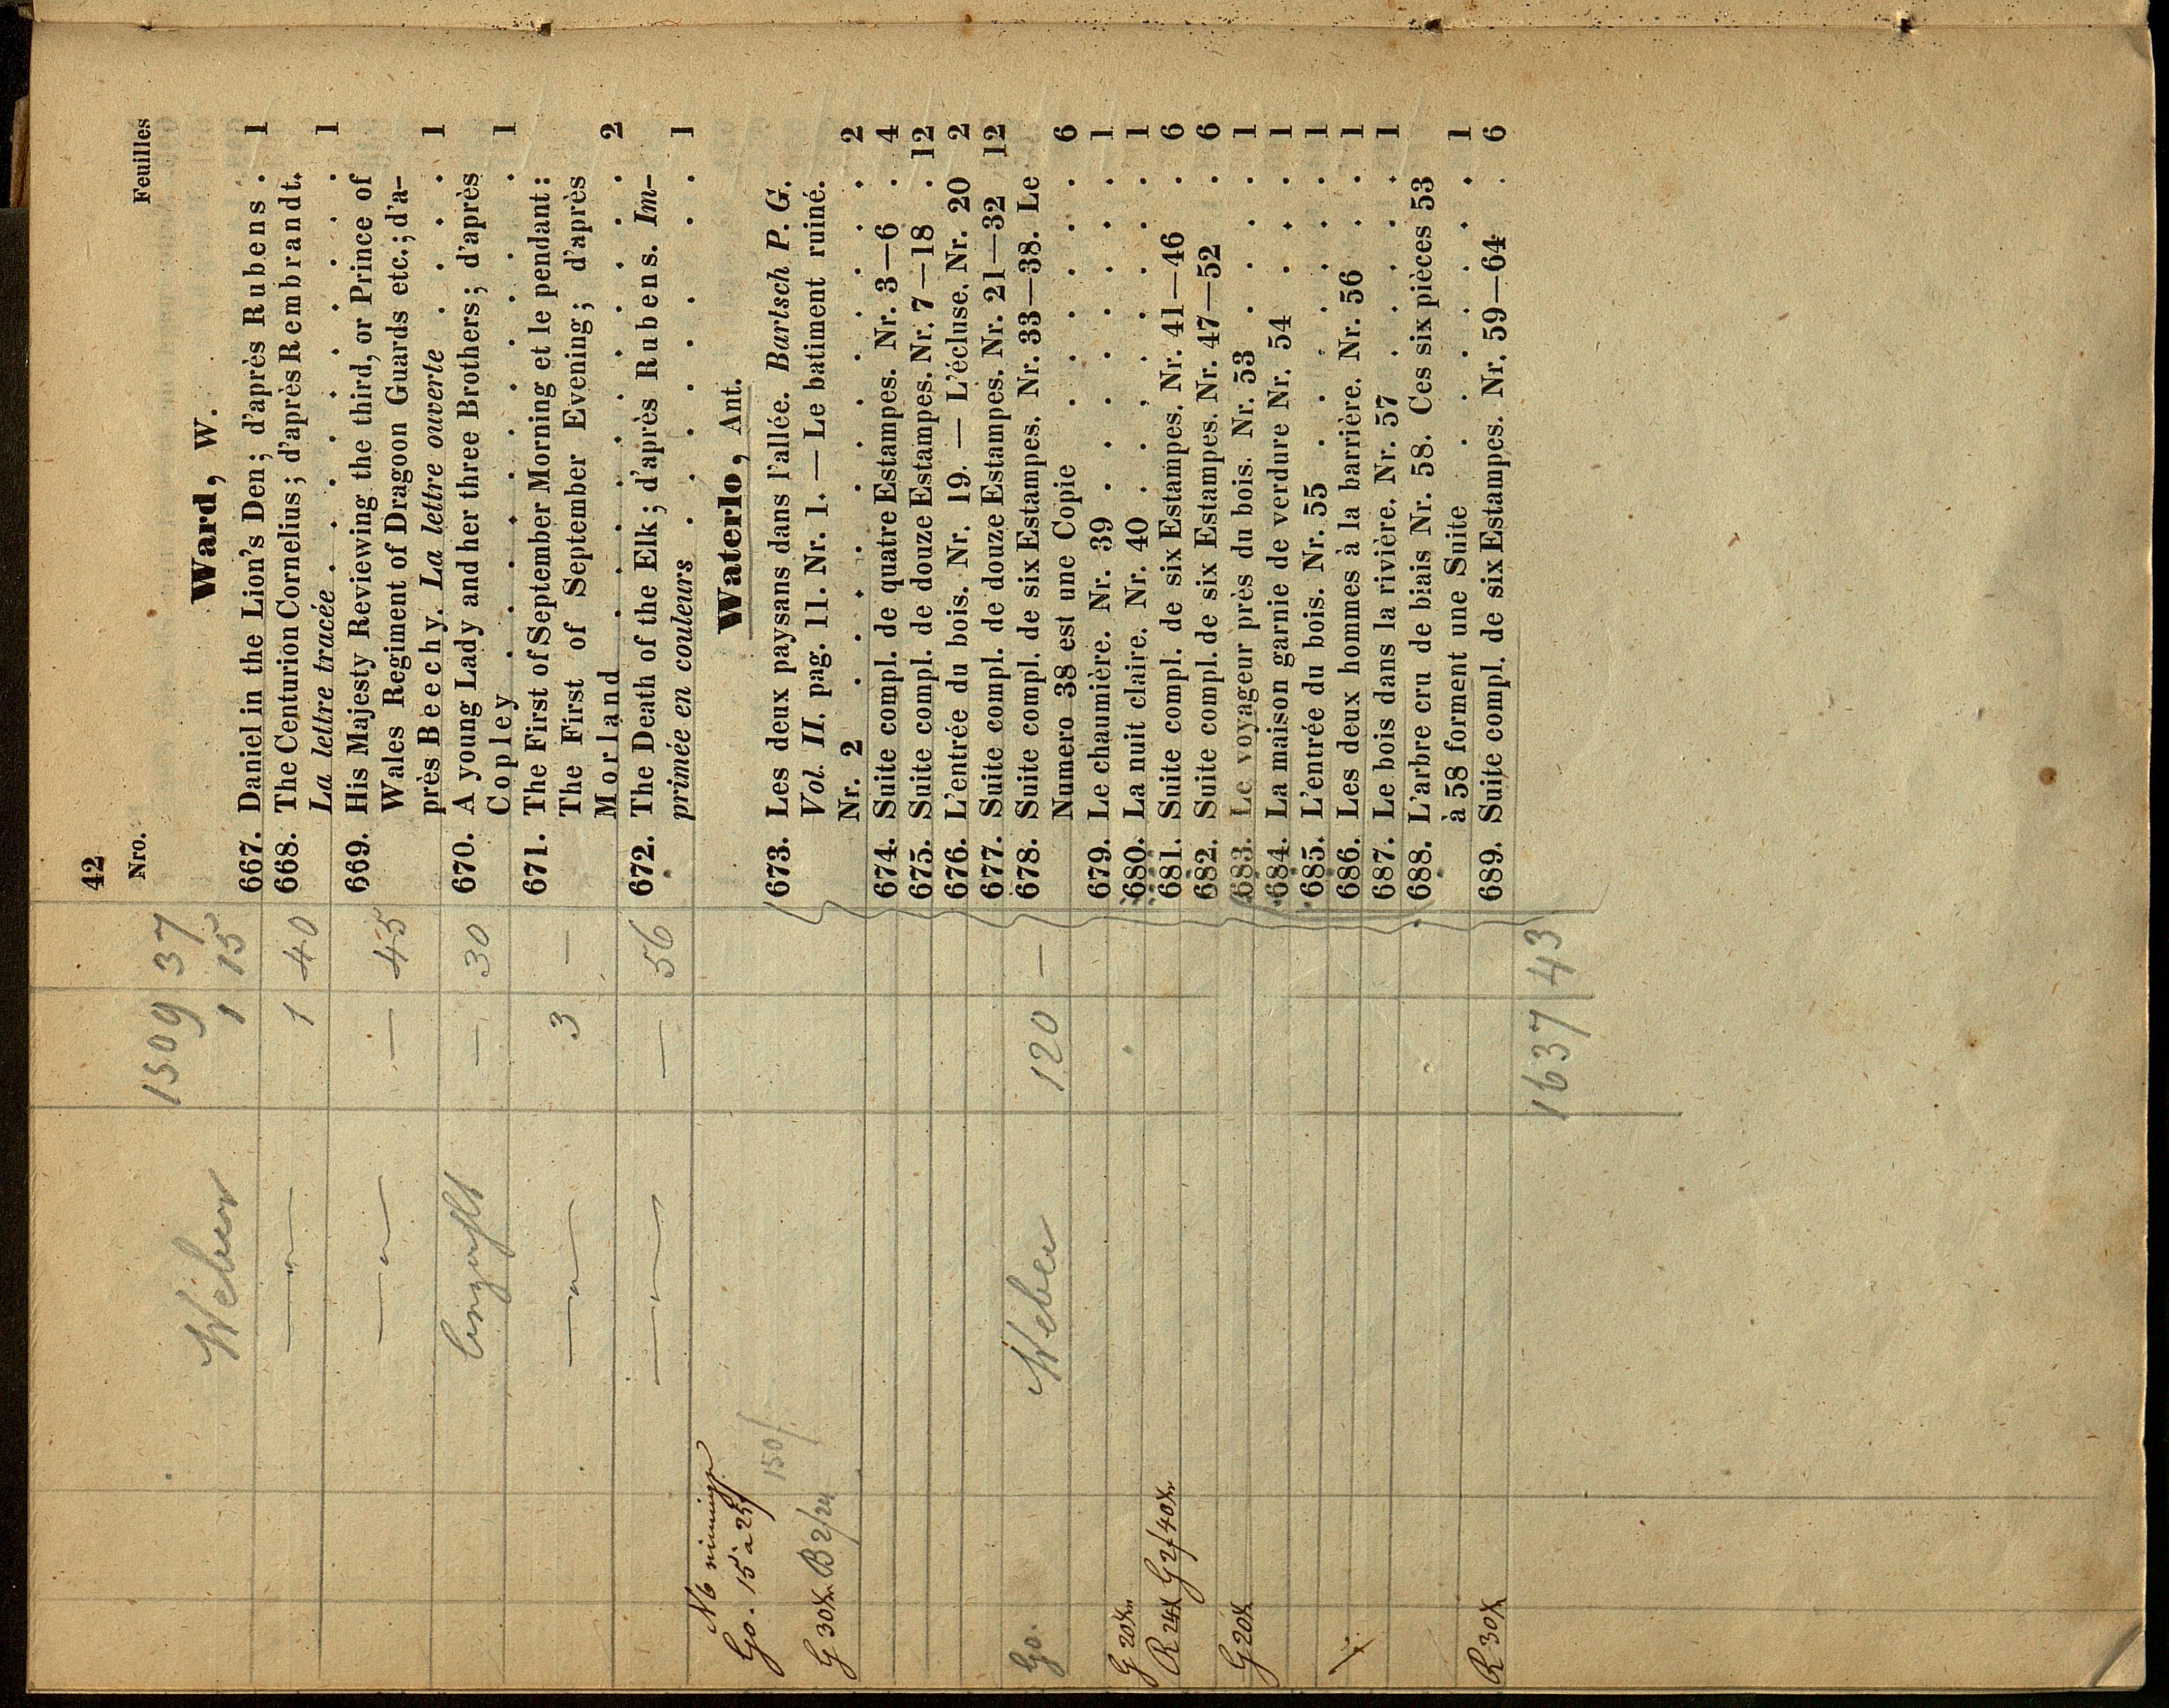 42
Nro. Feuilles
1509 37
Ward, W.
Weber 1 15 667. Daniel in the Lion's Den; d'après Rubens . 1
1 40 668. The Centurion Cornelius; d'après Rembrandt.
La lettre tracée . . . . . . . . . 1
— 45 669. His Majesty Reviewing the third, or Prince of
Wales Regiment of Dragoon Guards etc.; d'a-
près Beechy. La lettre ouverte . . . . 1
— 30 670. A young Lady and her three Brothers; d'après
Copley . . . . . . . . . . . 1
3 — 671. The First of September Morning et le pendant:
The First of September Evening; d'après
Morland . . . . . . . . . . 2
— 56 672. The Death of the Elk; d'après Rubens. Im-
primée en couleurs . . . . . . . . 1
Waterlo, Ant.
Go. 15 a 25f
150f
673. Les deux paysans dans l'allée. Bartsch P. G.
G 30X. B 2/24 Vol. II. pag. 11. Nr. 1. — Le batiment ruiné.
Nr. 2 . . . . . . . . . . . . 2
674. Suite compl. de quatre Estampes. Nr. 3—6 . 4
675. Suite compl. de douze Estampes. Nr. 7—18 . 12
676. L'entrée du bois. Nr. 19. — L'écluse. Nr. 20 2
677. Suite compl. de douze Estampes. Nr. 21—32 12
Go. Weber 120 — 678. Suite compl. de six Estampes. Nr. 33—38. Le
Numero 38 est une Copie . . . . . . 6
G 20X. 679. Le chaumière. Nr. 39 . . . . . . . 1
680. La nuit claire. Nr. 40 . . . . . . . 1
R 24X G 2f 40X. 681. Suite compl. de six Estampes. Nr. 41—46 . 6
682. Suite compl. de six Estampes. Nr. 47—52 . 6
G 20X 683. Le voyageur près du bois. Nr. 53 . . . . 1
684. La maison garnie de verdure Nr. 54 . . . 1
685. L'entrée du bois. Nr. 55 . . . . . . . 1
686. Les deux hommes à la barrière. Nr. 56 . . 1
687. Le bois dans la rivière. Nr. 57 . . . . . 1
688. L'arbre cru de biais Nr. 58. Ces six pièces 53
à 58 forment une Suite . . . . . . . 1
R 30X 689. Suite compl. de six Estampes. Nr. 59—64 . 6
1637 43